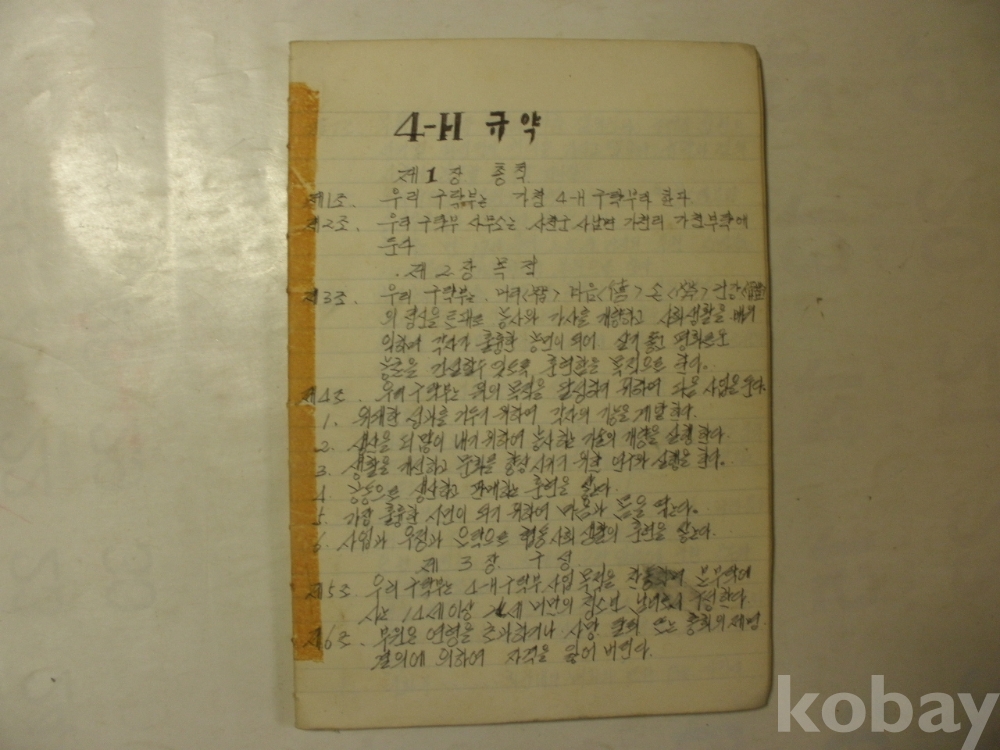 4-H 규약
제1장 총칙
제1조. 우리 구락부는 가천 4-H 구락부라 한다
제2조. 우리 구락부 사무소는 사천군 사남면 가천리 가천부락에
둔다
제2장 목적
제3조. 우리 구락부는 머리<智> 마음<德> 손<勞> 건강<體>
의 을 토대로 농사와 가사를 개량하고 사회생활을
의하여 각자가 훌륭한 농민이 되어 살기 좋고 평화로운
농촌을 건설할수 있도록 훈련함을 목적으로 한다.
제4조. 우리 구락부는 의 목적을 달성하기 위하여 다음 사업을 한다.
1. 위대한 성과를 거두기 위하여 각자의 을 계발한다.
2. 생산을 더 많이 내기 위하여 농사 기술의 개량을 실행한다.
3. 생활을 개선하고 문화를 향상시키기 위한 연구와 실행을 한다.
4. 공동으로 생산하고 판매하는 훈련을 쌓는다.
5. 가장 훌륭한 시민이 되기 위하여 마음과 몸을 닦는다.
6. 사업과 우정과 오락으로 협동사회생활의 훈련을 쌓는다.
제 3 장 구성
제5조. 우리 구락부는 4-H 구락부 사업 목적을 본부락에
사는 14세 이상 세 미만의 청소년 남녀로서 구성한다.
제6조. 부원은 연령을 초과하거나 사망 탈퇴 또는 총회의 제명
결의에 의하여 자격을 잃어버린다.
kobay